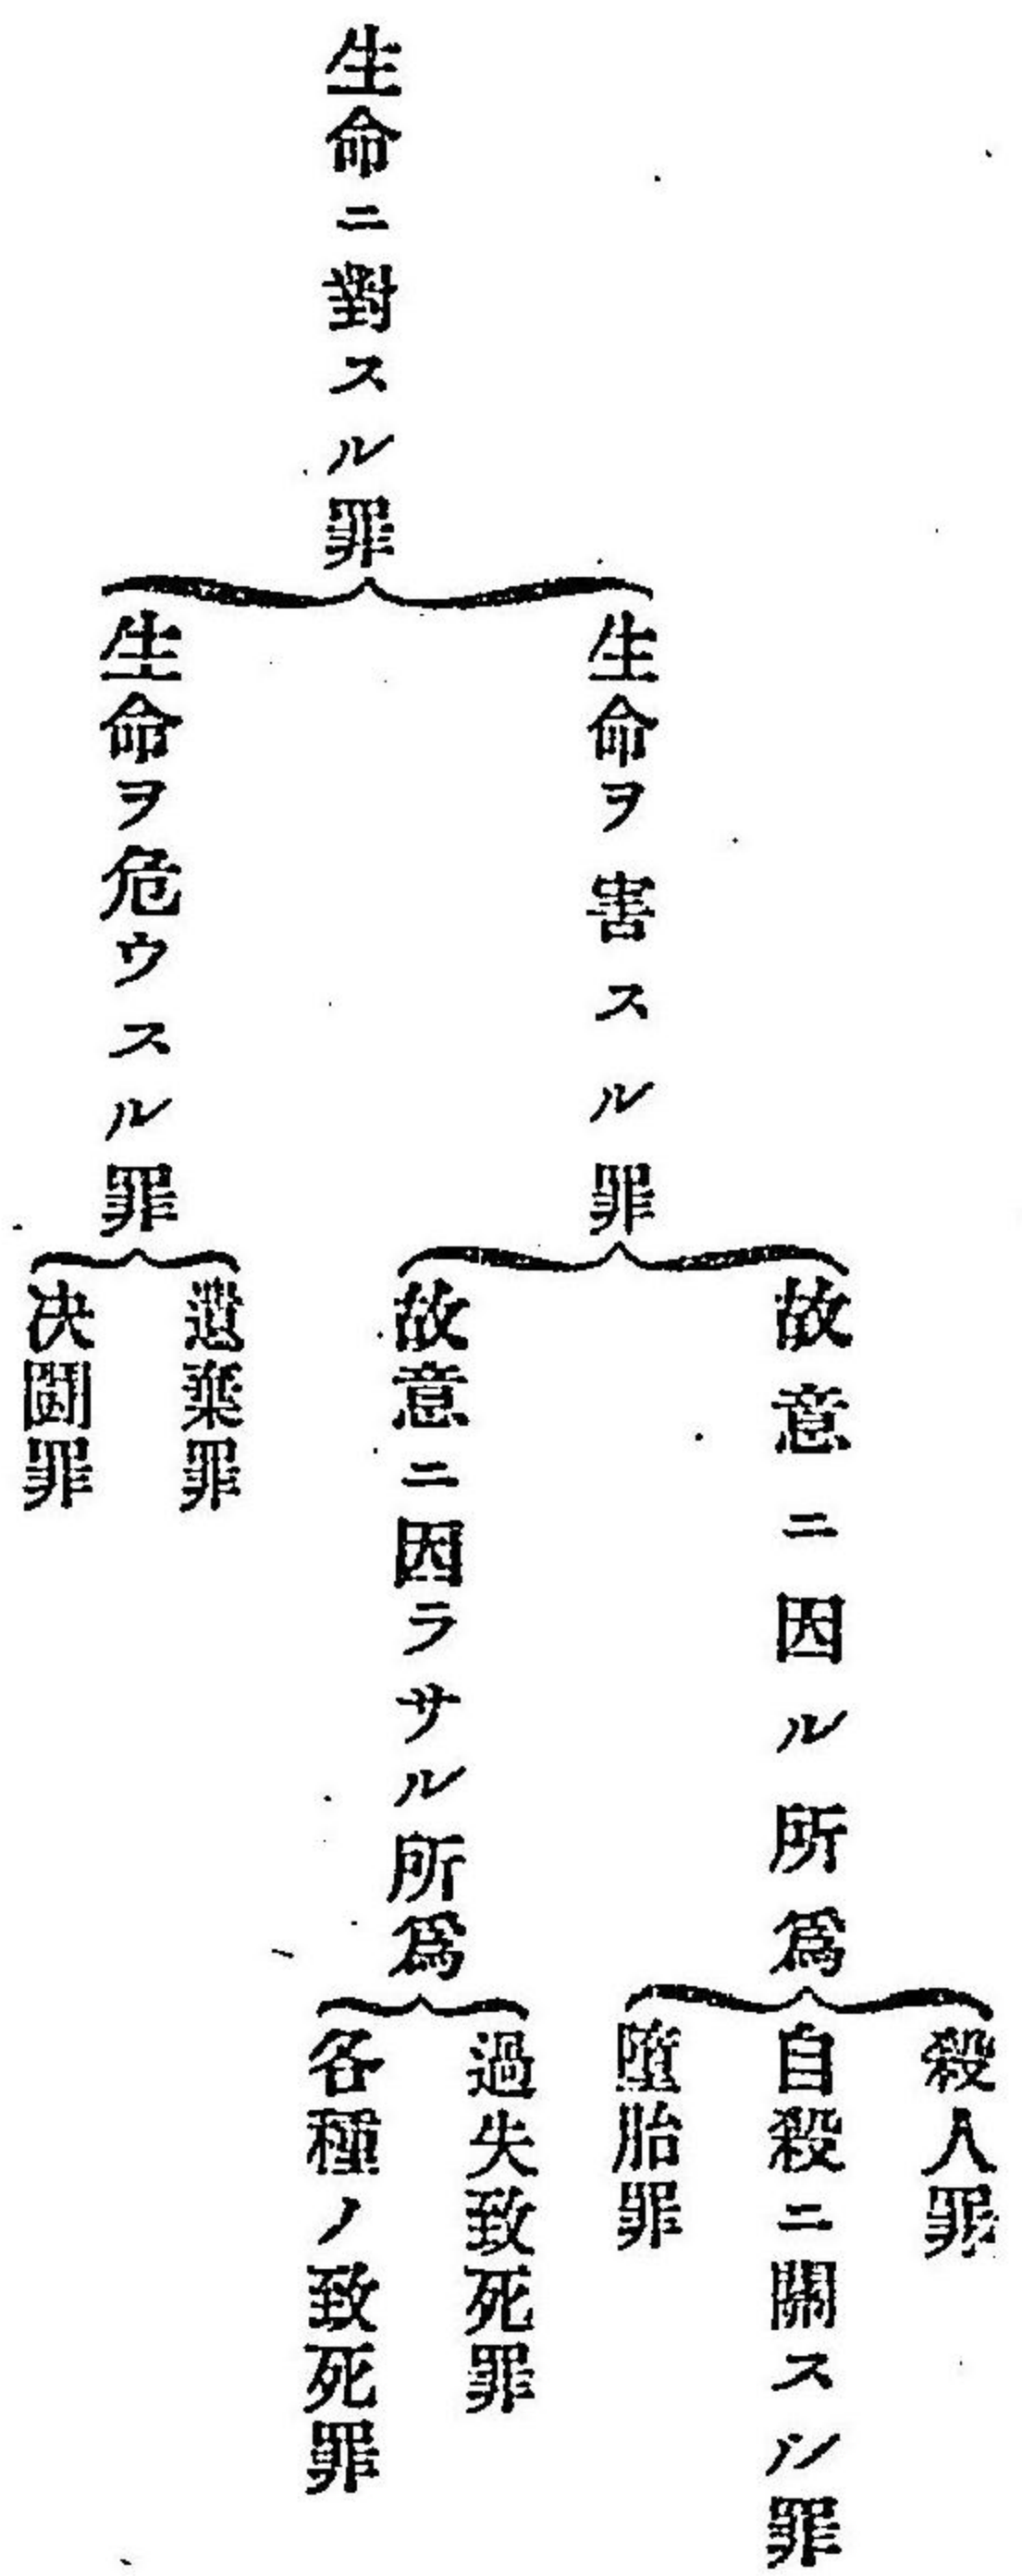 生命ニ對スル罪
生命ヲ害スル罪
故意ニ因ル所爲
殺人罪
自殺ニ關スル罪
墮胎罪
故意ニ因ラサル所爲
過失致死罪
各種ノ致死罪
生命ヲ危ウスル罪
遺棄罪
决鬪罪